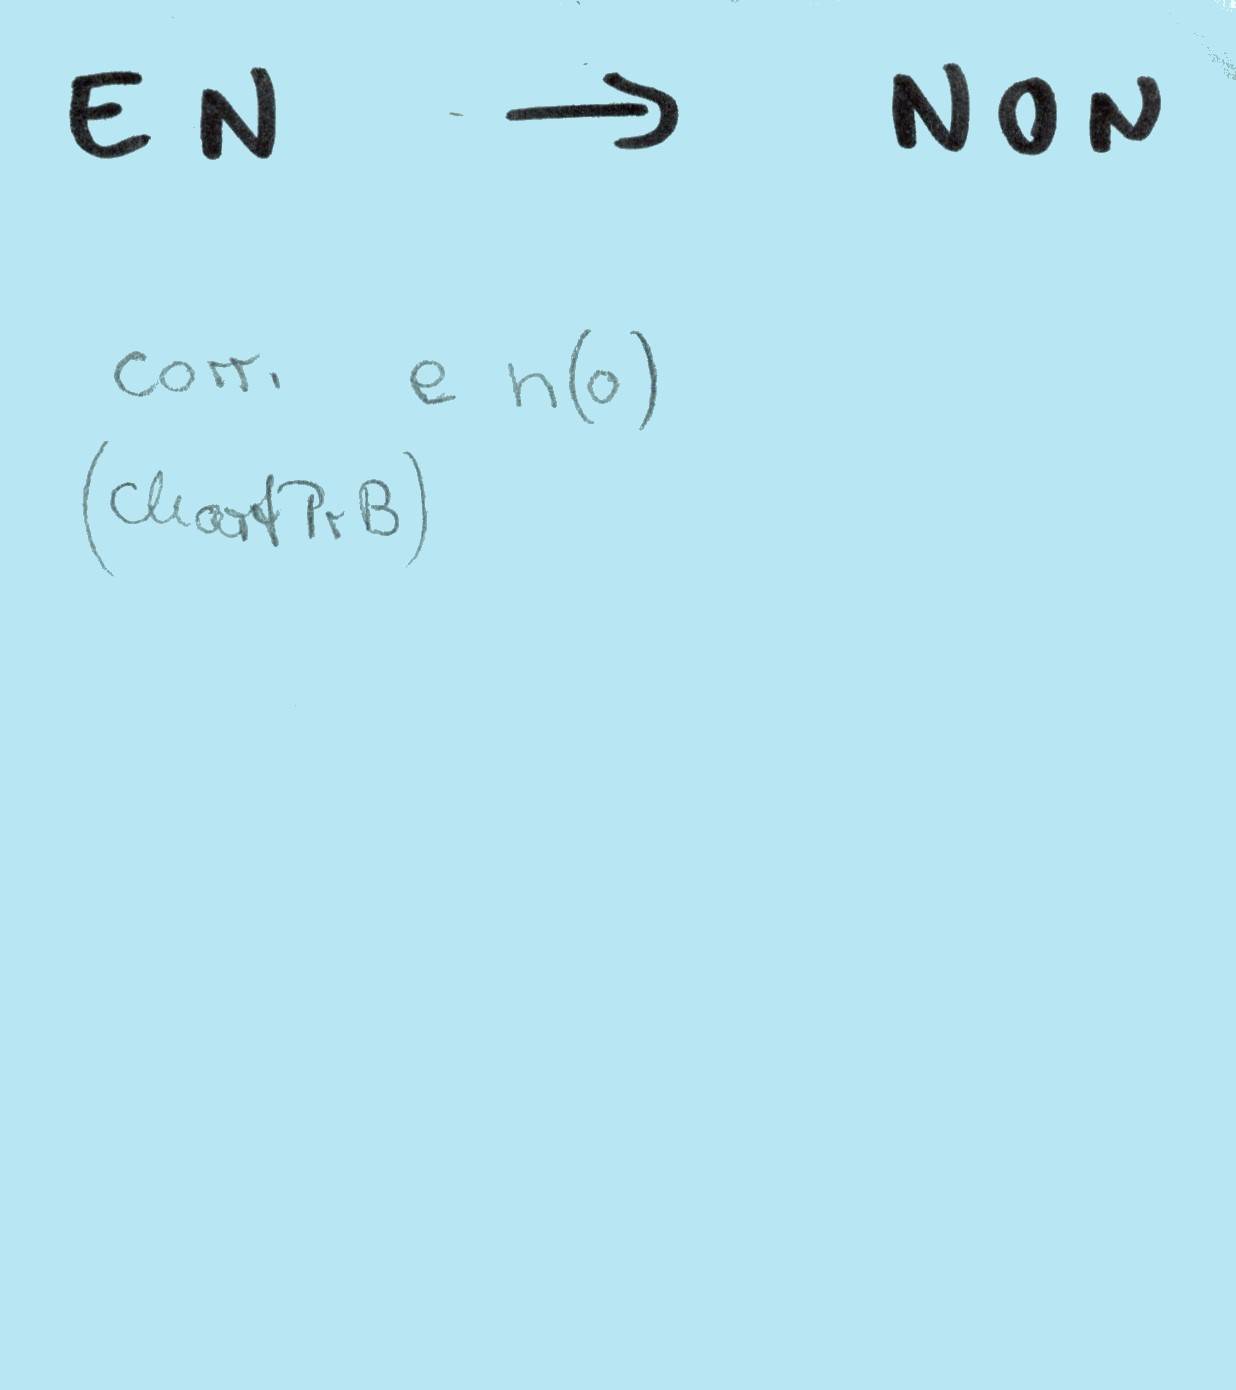 EN → NON
corr. e n(o)
(ChartPrB)